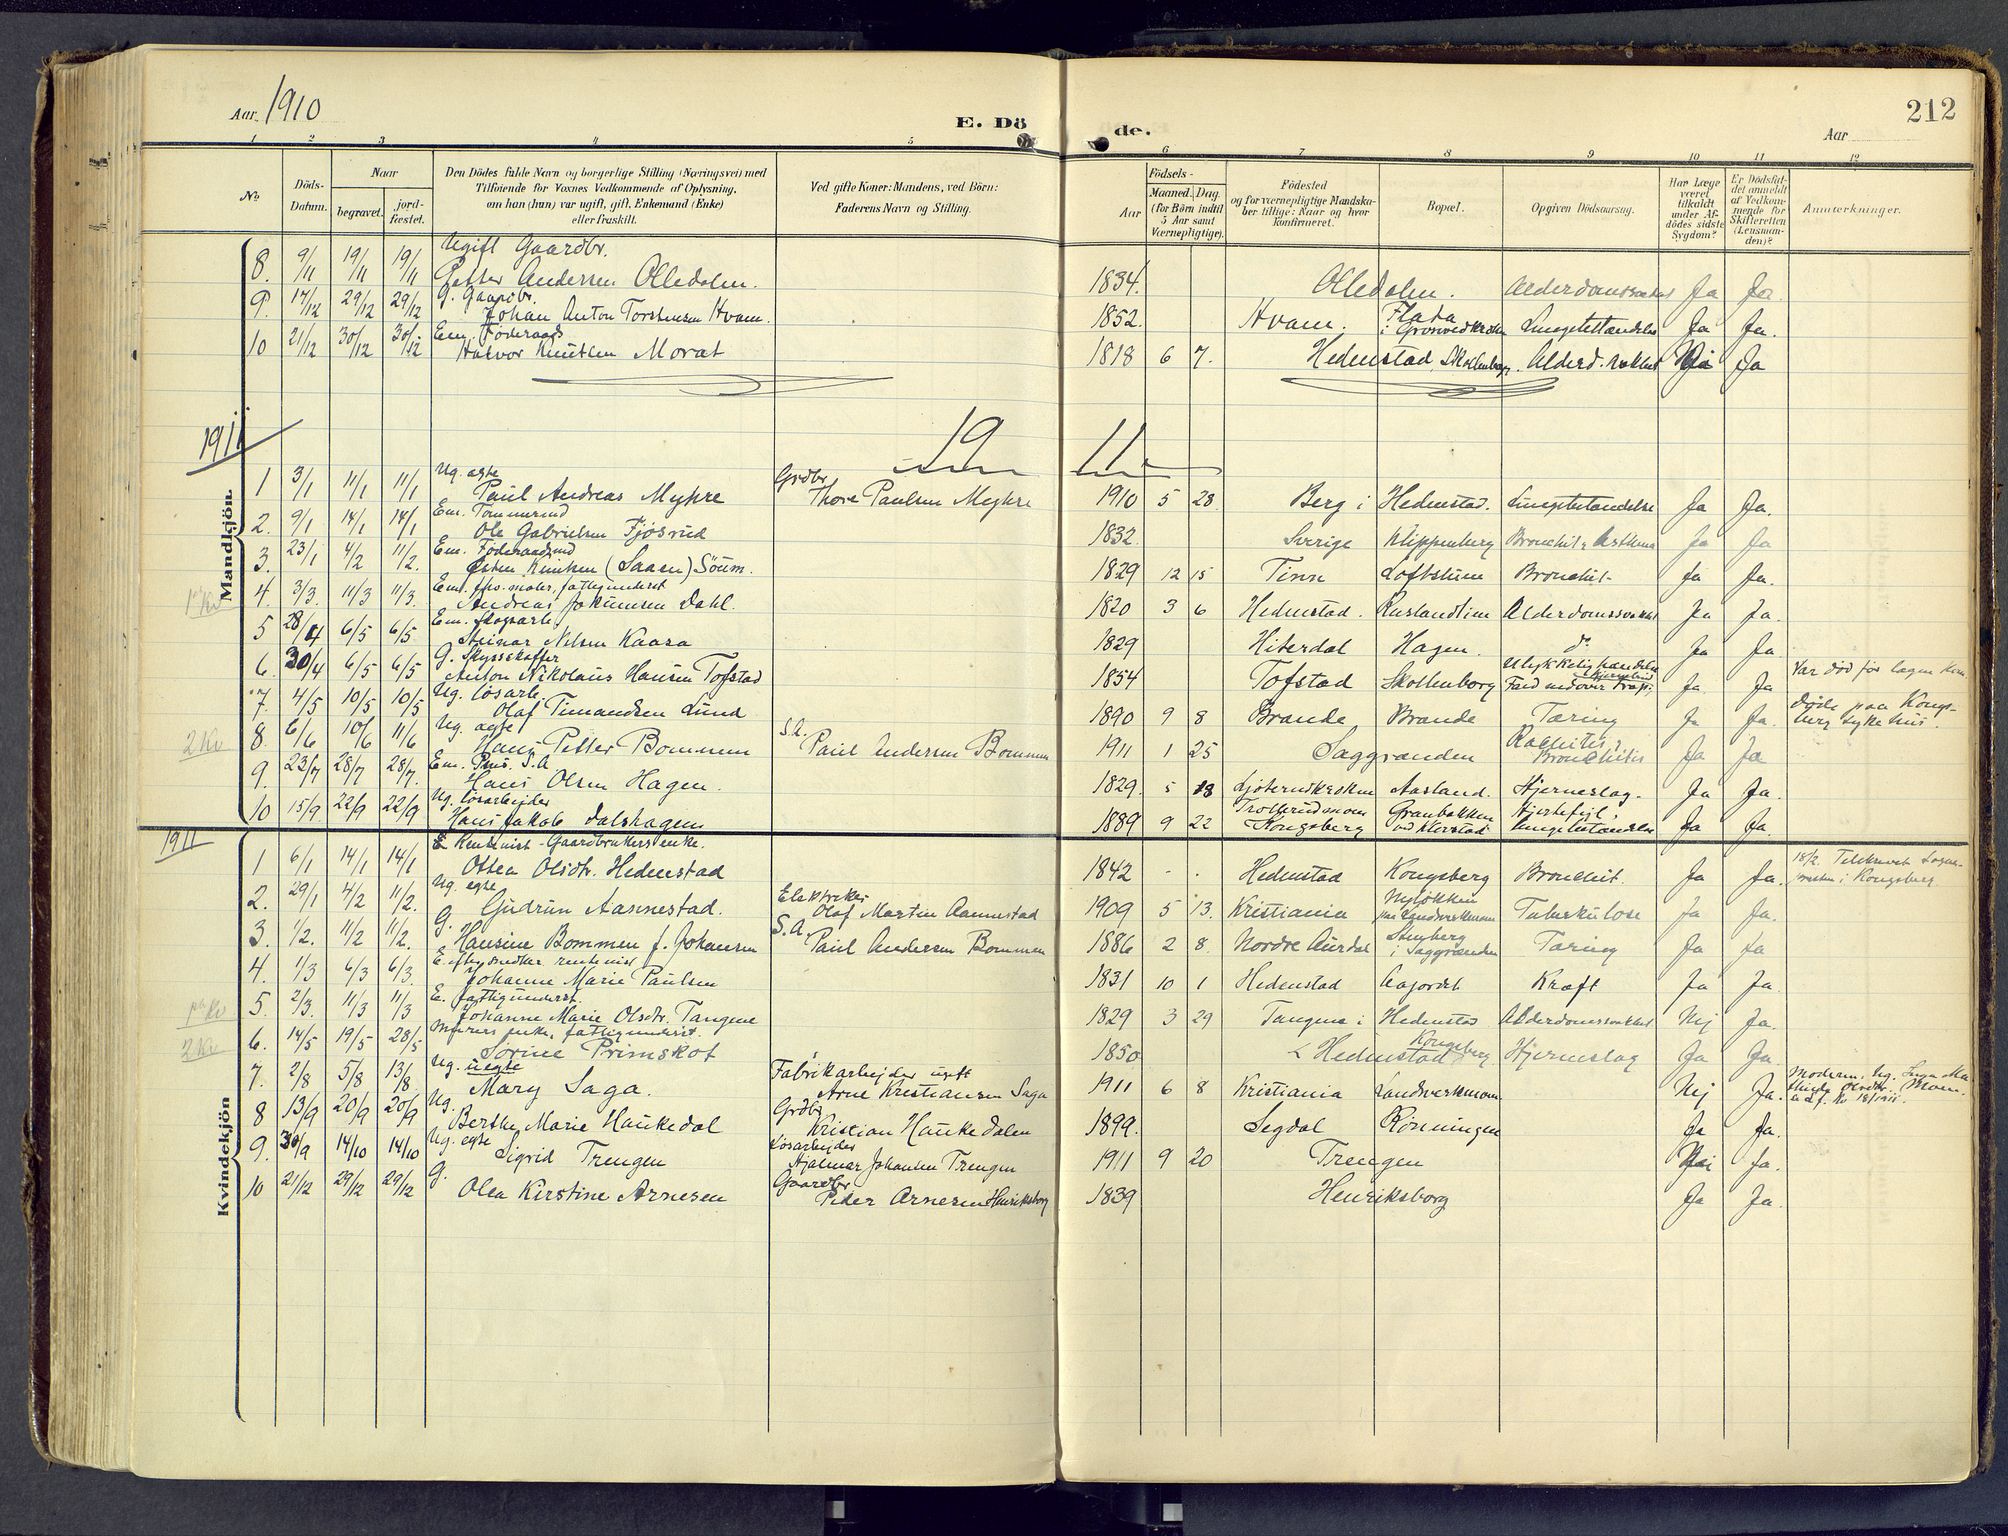 Aar 1910
E. Dö
de.
Aar
212
1 2 3 4 5 6 7 8 9 10 11 12
No.
Döds-
Datum.
Naar
begravet.
jord-
fæstet.
Den Dödes fulde Navn og borgerlige Stilling (Næringsvei) med
Tilföiende for Voxnes Vedkommende af Oplysning,
om han (hun) var ugift, gift, Enkemand (Enke)
eller fraskilt.
Ved gifte Koner: Mandens, ved Börn:
Faderens Navn og Stilling.
Födsels-
Aar
Maaned. Dag.
(for Börn indtil
5 Aar samt
Værnepligtige).
Födested
og for værnepligtige Mandska-
ber tillige: Naar og hvor
konfirmeret.
Bopæl.
Opgiven Dödsaarsag.
Har Læge
været
tilkaldt
under Af-
dödes sidste
Sygdom?
Er Dödsfal-
det anmeldt
af Vedkom-
mende for
Skifteretten
(Lensman-
den)?
Anmærkninger.
Mandkjön.
Ugift Gaardbr.
8. 9/11 19/11 19/11 Petter Andersen Olledalen. 1834. Olledalen. Alderdomssvakhet Ja Ja.
G. Gaardbr.
9. 17/12 29/12 29/12 Johan Anton Torstensen Hvam. 1852. Hvam. Flata i Grosvedkroken Lungebetændelse Ja Ja.
Em. Föderaads
10 21/12 30/12 30/12 Halvor Knutsen Morat 1818 6 7. Hedenstad Skollenborg. Alderd. svakhet Ja
1911
19 11.
Ug. egte Grdbr.
1 3/1 11/1 11/1 Paul Andreas Myhre Thore Paulsen Myhre 1910 5 28 Berg i Hedenstad. Lungebetændelse Ja Ja.
Em. Tömmermd
2. 9/1 14/1 14/1 Ole Gabrielsen Fjösrud 1832. Sverige Klippenberg Bronchit, Asthma Ja Ja
Em. Föderaadsmd
3. 23/1 4/2 11/2. Östen Knutsen (Saaen) Söum. 1829 12 15 Tinn Loftstuen Bronchit Ja Ja.
1ste Kv
4. 3/3. 11/3 11/3. Andreas Jokumsen Dahl. 1820 3 6 Hedenstad. Ruslandtien Alderdomssvakhet Ja Ja.
Em. skogsarb.
5 28/4 6/5 6/5 Steinar Nilsen Kaasa 1829 Hiterdal Hagen. do Ja Ja.
G. Skysskaffer
6. 30/4 6/5 6/5 Anton Nikolaus Hansen Tofstad 1854 Tofstad Skollenborg Ulykkelig hændelse Fald nedover trap; Ja Ja Var död för lægen kom
Ug. lösarb.
7. 4/5 10/5 10/5 Olaf Timandsen Lund 1890 9 8 Brande Brande Tæring Ja Ja. Döde paa Kongs-
berg sykehus.
2 Kv
Ug. egte S.A.
8. 6/6 10/6 11/6 Hans Petter Bommen Paul Andersen Bommen 1911 1 25 Saggrænden Rachitis, Bronchitis Ja Ja
Em. Pens. S.A
9 23/7 28/7 28/7. Hans Olsen Hagen. 1829. 5 18 Ljöterudkroken Aasland. Hjerneslag. Ja Ja.
Ug. lösarbejder
10 15/9 22/9 22/9 Hans Jakob Dalshagen 1889 9 22 Trollerudmoen Kongsberg Granbakken ved Klovstad Hjertefejl, Lungebetændelse Ja Ja.
1911
Kvindekjön
Rentenist - Gaardbrukers enke.
1 6/1 14/1 14/1 Ottea Olsdtr. Hedenstad 1842 . . Hedenstad Kongsberg Bronchit. Ja Ja. 18/2. Tilskrevet Sogne-
presten i Kongsberg.
Ug. egte Elektriker
2. 29/1 4/2 11/2. Gudrun Aannestad. Olaf Martin Aannestad 1909 5 13. Kristiania Nylökken paa Landverksmoen Tuberkulose Ja Ja.
G. S.A.
3. 1/2. 11/2 11/2. Hansine Bommen f. Johansen Paul Andersen Bommen 1886 2 8. Nordre Aurdal Stenberg i Saggrænden Tæring Ja Ja
4. 1/3 6/3 6/3. Johanne Marie Paulsen 1831 10 1 Hedenstad Aajordet Kræft Ja Ja.
E. fattigunderst.
5. 2/3. 11/3 11/3 Johanne Marie Olsdtr. Tangene 1829 3 29 Tangene i Hedenstad Alderdomssvakhet Nej Ja.
2 Kv
Murers enke, fattigunderst.
6. 14/5 19/5 28/5 Sörine Primskot 1850. Hedenstad Kongsberg Hjerneslag Ja Ja.
Ug. uegte Fabrikarbejder ugift
7. 2/8 5/8 13/8. Mary Saga. Arne Kristiansen Saga 1911 6 8 Kristiania Landverksmoen Nej Ja. Moderen: Ug. Inga Ma-
thilde Olsdtr. Moen.
Ug. Grdbr
8 13/9 20/9 20/9 Berthe Marie Haukedal Kristian Haukedalen 1899. Segdal Rönningen Ja Ja.
Ug. egte Lösarbejder
9. 30/9 14/10 14/10 Sigrid Trengen Hjalmar Johansen Trengen 1911 9 20 Trengen Nei Ja.
G. Gaardbr
10 21/12 29/12 29/12 Olea Kirstine Arnesen Peder Arnesen Henriksborg 1839 Henriksborg Ja Ja.